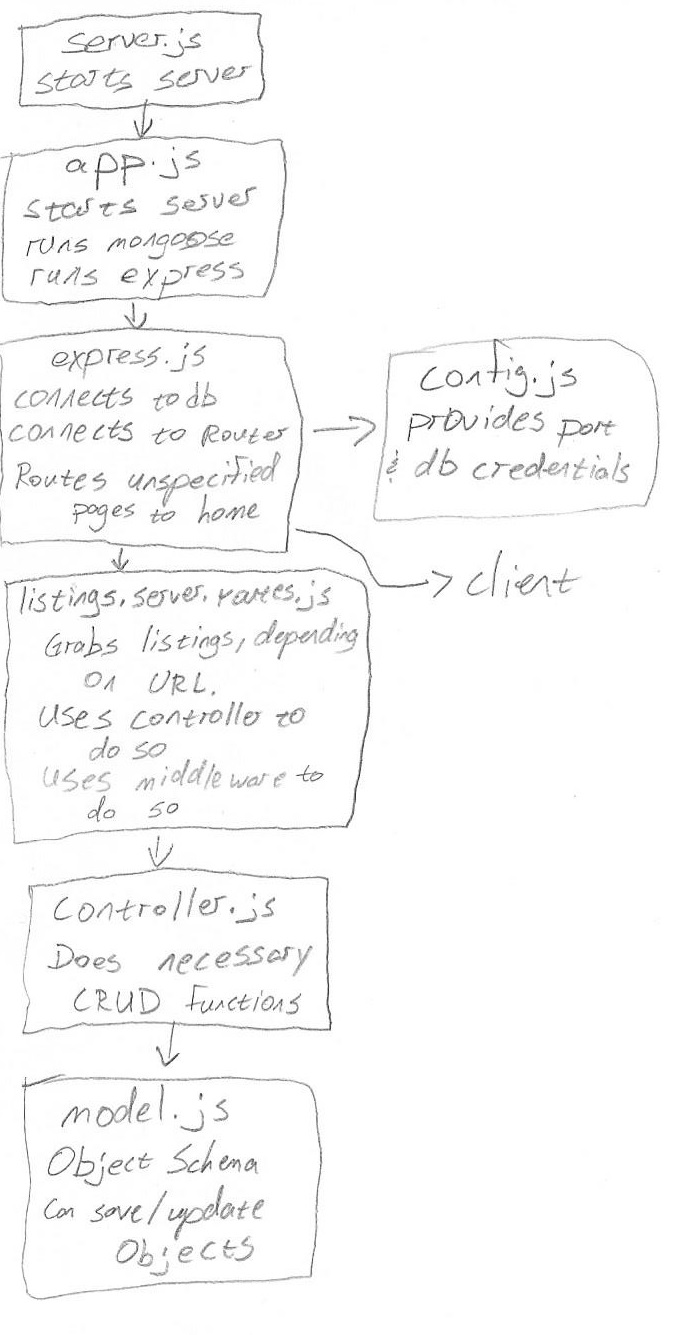 server.js
starts server
app.js
starts server
runs mongoose
runs express
express.js
connects to db
connects to Router
Routes unspecified
pages to home
config.js
provides port
& db credentials
client
listings.server.routes.js
Grabs listings, depending
on URL.
Uses controller to
do so
Uses middleware to
do so
Controller.js
Does necessary
CRUD functions
model.js
Object Schema
Can save/update
Objects